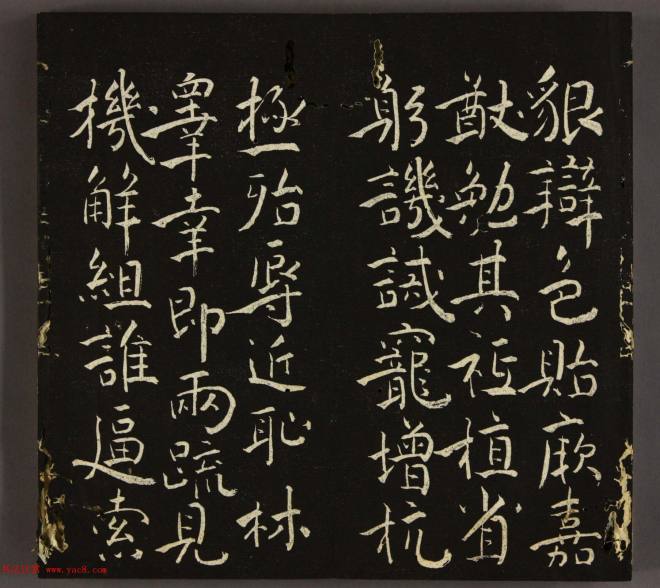 貌辯色貽厥嘉
猷勉其祗植省
躬譏誡寵增抗
極殆辱近恥林
睾幸即兩疏見
機解組誰逼索
www.yac8.com